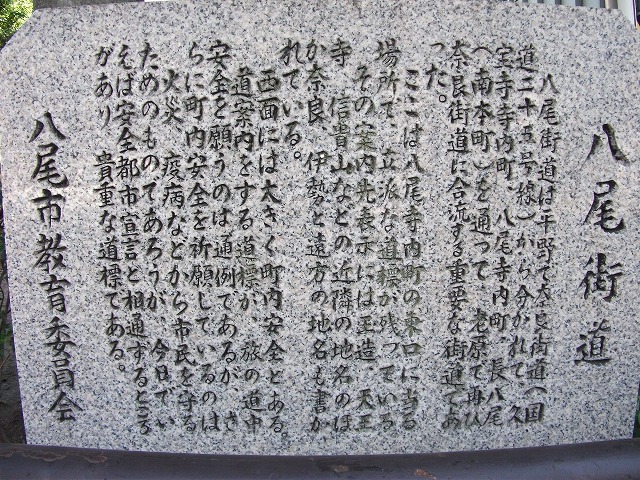 八尾街道
八尾街道は平野で奈良街道(国
道二十五号線)から分かれて、久
宝寺寺内町、八尾寺内町、長八尾
(南本町)を通って、老原で再び
奈良街道に合流する重要な街道であ
った。
ここは八尾寺内町の東口に当る
場所で、立派な道標が残っている
その案内先表示には玉造、天王
寺、信貴山などの近隣の地名のほ
か奈良、伊勢と遠方の地名も書か
れている。
西面には大きく町内安全とある。
道案内をする道標が、旅の道中
安全を願うのは通例であるが、さ
らに町内安全を祈願しているのは
火災、疫病などから市民を守る
ためのものであろうが、今日でい
えば安全都市宣言と相通ずるところ
があり、貴重な道標である。
八尾市教育委員会